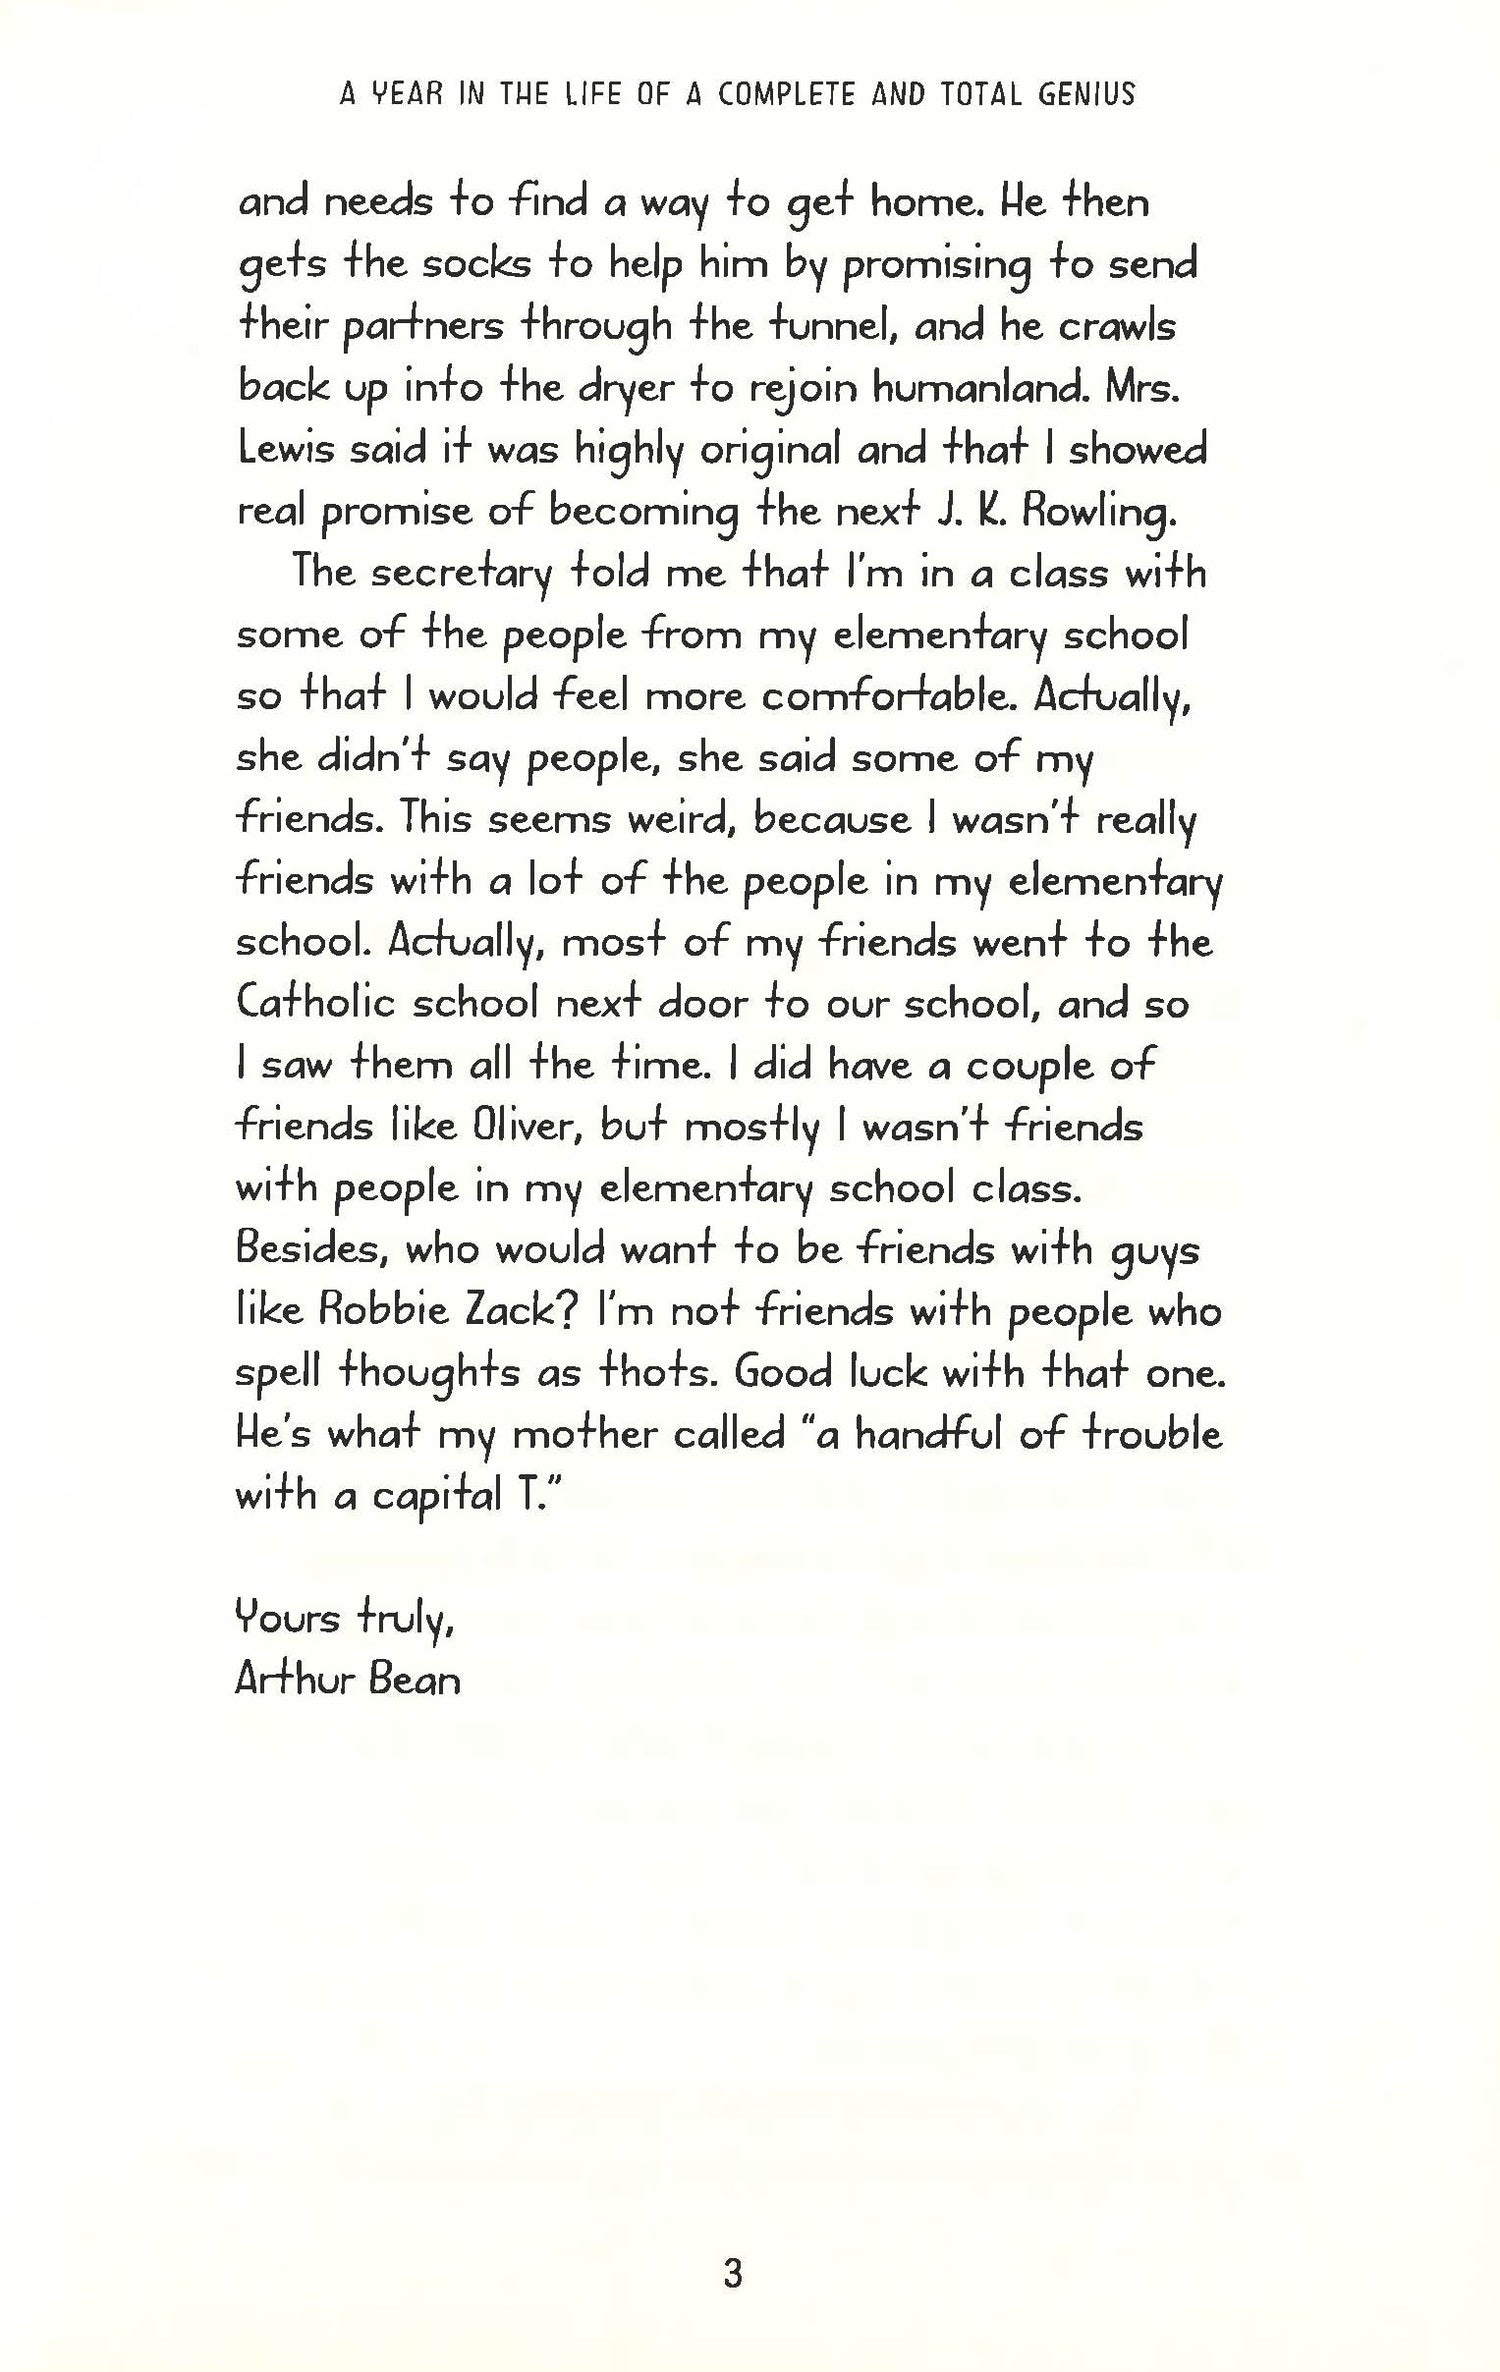 A YEAR IN THE LIFE OF A COMPLETE AND TOTAL GENIUS
and needs to find a way to get home. He then
gets the socks to help him by promising to send
their partners through the tunnel, and he crawls
back up into the dryer to rejoin humanland. Mrs.
Lewis said it was highly original and that I showed
real promise of becoming the next J. K. Rowling.
The secretary told me that I'm in a class with
some of the people from my elementary school
so that I would feel more comfortable. Actually,
she didn't say people, she said some of my
friends. This seems weird, because I wasn't really
friends with a lot of the people in my elementary
school. Actually, most of my friends went to the
Catholic school next door to our school, and so
I saw them all the time. I did have a couple of
friends like Oliver, but mostly I wasn't friends
with people in my elementary school class.
Besides, who would want to be friends with guys
like Robbie Zack? I'm not friends with people who
spell thoughts as thots. Good luck with that one.
He's what my mother called "a handful of trouble
with a capital T."
Yours truly,
Arthur Bean
3